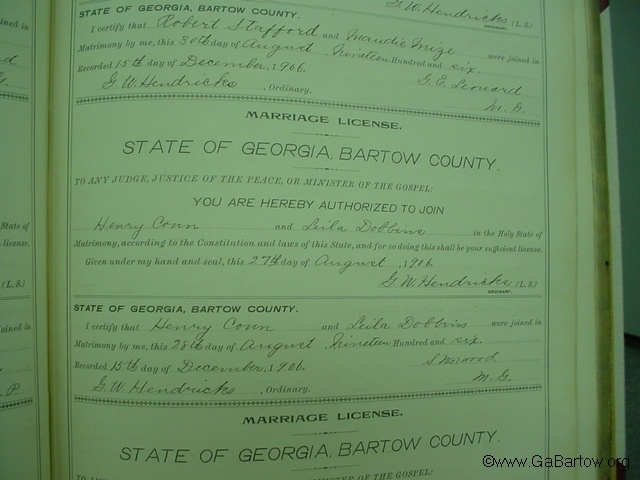 G. W. Hendricks (L. S.)
ORDINARY.
STATE OF GEORGIA, BARTOW COUNTY.
I certify that Robert Stafford and Maudie Mize were joined in
Matrimony by me, this 30th day of August, Nineteen Hundred and six.
Recorded 15th day of December, 1906. G. E. Leonard
G. W. Hendricks, Ordinary. M. G.
MARRIAGE LICENSE.
STATE OF GEORGIA, BARTOW COUNTY.
TO ANY JUDGE, JUSTICE OF THE PEACE, OR MINISTER OF THE GOSPEL:
YOU ARE HEREBY AUTHORIZED TO JOIN
Henry Conn and Leila Dobbins in the Holy State of
Matrimony, according to the Constitution and laws of this State, and for so doing this shall be your sufficient license.
Given under my hand and seal, this 27th day of August, 1906.
G. W. Hendricks (L. S.)
ORDINARY.
STATE OF GEORGIA, BARTOW COUNTY.
I certify that Henry Conn and Leila Dobbins were joined in
Matrimony by me, this 28th day of August, Nineteen Hundred and six.
Recorded 15th day of December, 1906.
G. W. Hendricks, Ordinary. M. G.
MARRIAGE LICENSE.
STATE OF GEORGIA, BARTOW COUNTY.
MINISTER OF THE GOSPEL:
State of
license.
(L. S.)
joined in
©www.GaBartow.org